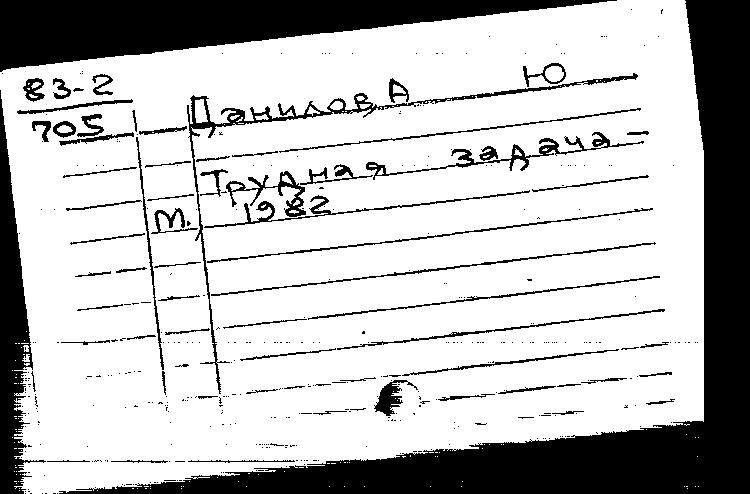 83-2
705
Данилов, А Ю
Трудная задача -
М., 1982